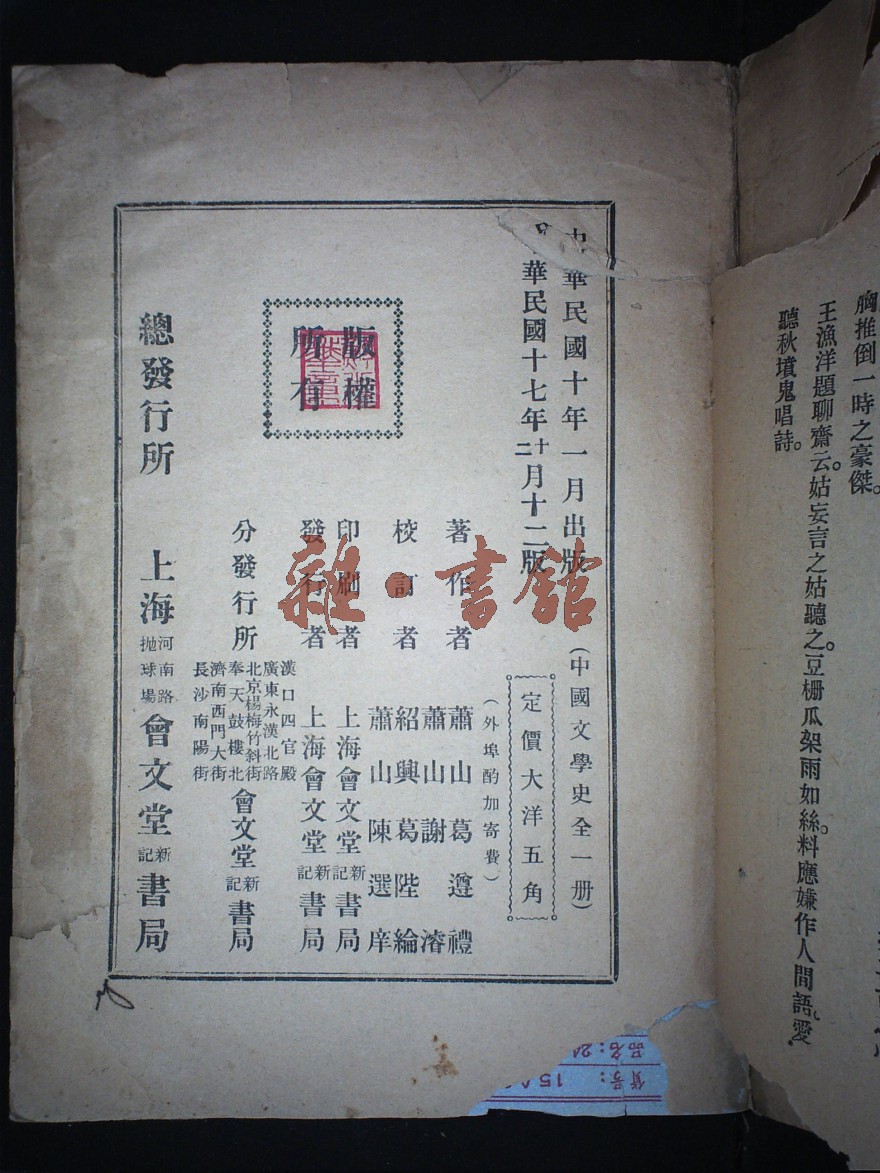 胸推倒一時之豪傑。
王漁洋題聊齋云。姑妄言之姑聽之。豆棚瓜架雨如絲。料應嫌作人間語。愛
聽秋墳鬼唱詩。
中華民國十年一月出版
華民國十七年十二月十二版
(中國文學史全一册)
定價大洋五角
(外埠酌加寄費)
著作者 蕭山葛遵禮
蕭山謝濬
校訂者 紹興葛陛綸
蕭山陳選庠
印刷者 上海會文堂新記書局
發行者 上海會文堂新記書局
分發行所
漢口四官殿
廣東永漢北路
北京楊梅竹斜街
奉天鼓樓北
濟南西門大街
長沙南陽街
會文堂新記書局
版權
所有
總發行所 上海河南路拋球場會文堂新記書局
雜·書館
貨号: 15
品名: 2